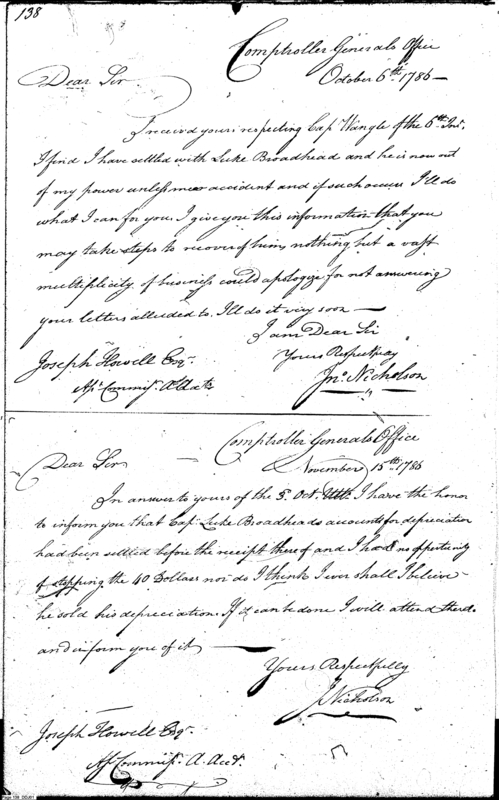 138
Comptroller Generals Office
October 6th. 1786
Dear Sir
I receivd yours respecting Cap Wangle of the 6th
I find I have settled with Luke Broadhead and he is now out
of my power unless mear accident and if such occurs I'll do
what I can for you I give you this information that you
may take steps to recover of him, nothing but a vast
multiplicity of business could apologize for not answering
your letters alluded to. I'll do it very soon
I am Dear Sir
Yours Respectfuly
Jno. Nicholson
Joseph Howell Esqr
Commissr.
Comptroller Generals Office
November 15th 1786
Dear Sir
In answer to yours of the 5. Oct. Ult. I have the honor
to inform you that Capt Luke Broadheads accounts for depreciation
had been settled before the receipt thereof and I had no opportunity
of stopping the 40 Dollars nor do I think I ever shall I believe
he sold his depreciation. If it can be done I will attend thereto
and inform you of it
Yours Respectfully
J Nicholson
Joseph Howell Esqr
Commissr. A. Acct.